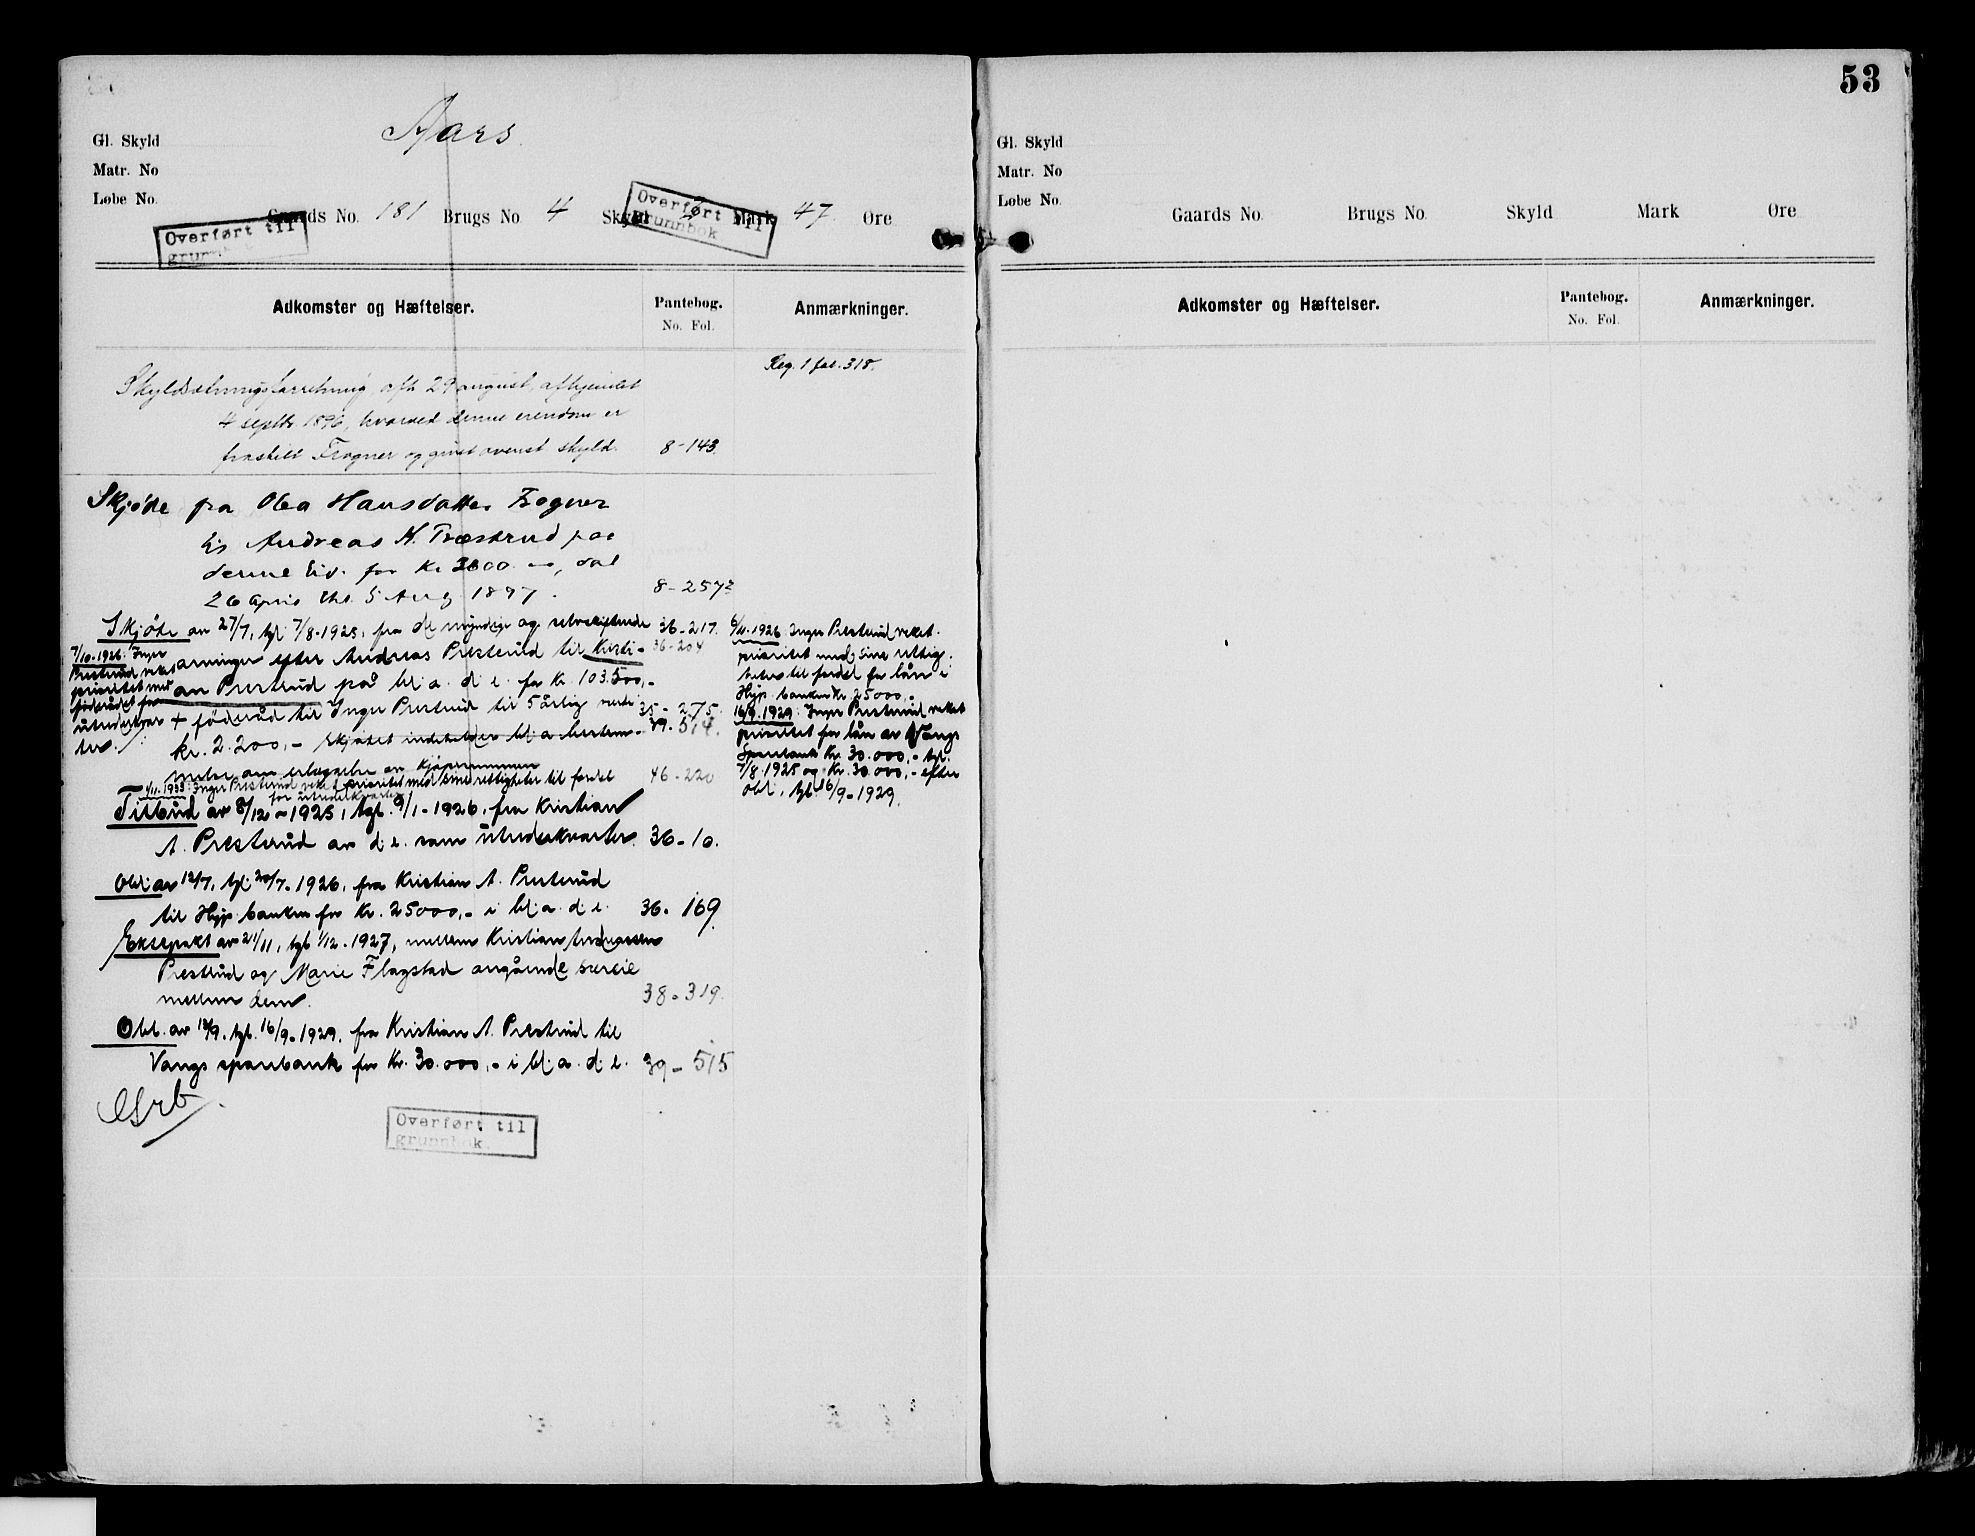 53
Aars
Gl. Skyld
Matr. No
Løbe No.
Gaards No. 181 Brugs No. 4 Skyld Mark 47. Øre
Overført til
grunnbok
Overført til
grunnbok
Adkomster og Hæftelser.
Pantebog.
No. Fol.
Anmærkninger.
Reg. 1 fol. 318.
Skyldsætningsforretning afh. 29 august, afhjemlet
4 septbr 1896, hvorved denne eiendom er
fraskilt Frogner og givet ovenst. skyld. 8-143.
Skjøde fra Olea Hansdatter Frogner
til Andreas K. Præstrud paa
denne Eid. for Kr 2600, dat
26 April thl. 5 Aug 1897. 8-257
Skjøte av 27/7, tgl. 7/8-1925, fra de myndige og selvskiftende 36-217.
36-204
arvinger efter Andreas Presterud til Kristi-
an Presterud på bl. a. d. e. for kr. 103.500,-
+ føderåd til Inger Presterud til 5 årlig verdi 35-275.
kr. 2.200,- Skjøtet indeholder bl. a. bestem- 39-514.
melse om erlæggelse av kjøpesummen
7/10-1926: Inger
Presterud veket
prioritet med
føderådet for
utrederkvar-
ter.
1/11-1933: Inger Presterud veket prioritet med sine rettigheter til fordel 46-220
for utrederkvarter
Tilbud av 8/12-1925, tgl. 9/1-1926, fra Kristian
A. Presterud av d. e. som utrederkvarter. 36-10.
Obl. av 12/7, tgl. 20/7-1926, fra Kristian A. Presterud
til Hyp. banken for kr. 25000,- i bl. a. d. e. 36-169.
Ektepakt av 21/11, tgl. 1/12-1927, mellem Kristian Andreassen
Presterud og Marie Flagstad angående særeie
mellem dem. 38-319.
Obl. av 12/9, tgl. 16/9-1929, fra Kristian A. Presterud til
Vangs sparebank for kr. 30.000,- i bl. a. d. e. 39-515
6/11-1926: Inger Presterud veket
prioritet med sine rettig-
heter til fordel for lån i
Hyp. banken kr. 25000,-
16/9-1929: Inger Presterud veket
prioritet for lån av Vangs
Sparebank kr. 30.000,- tgl.
7/8-1925 og kr. 30.000,- efter
obl. tgl. 16/9-1929.
Overført til
grunnbok.
Gl. Skyld
Matr. No
Løbe No.
Gaards No. Brugs No. Skyld Mark Øre
Adkomster og Hæftelser.
Pantebog.
No. Fol.
Anmærkninger.